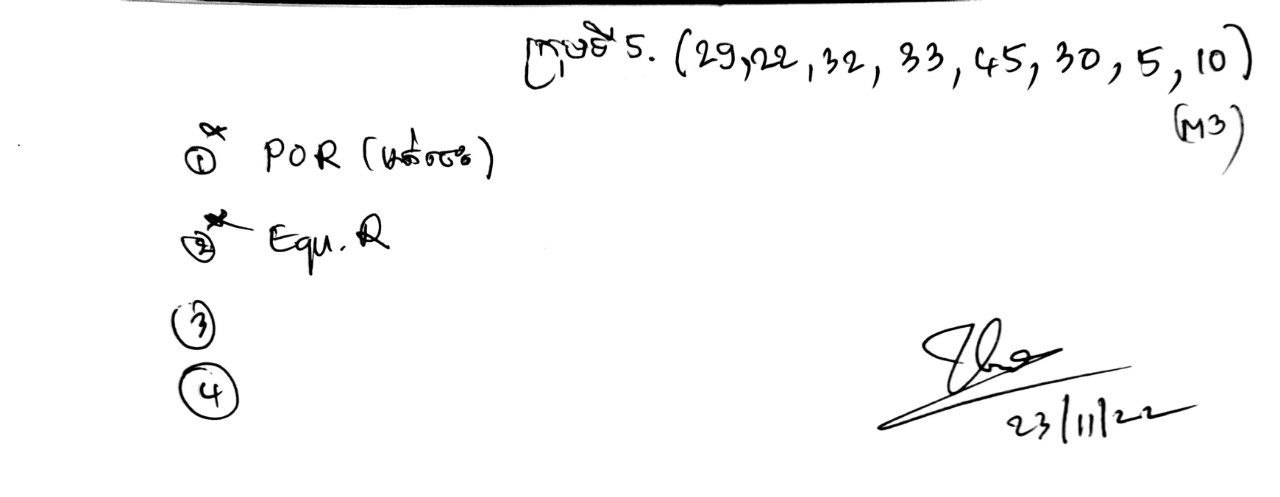 ក្រុមទី 5. (29,22,32,33,45,30,5,10)
(M3)
① POR
② Equ. R
③
④
23/11/22